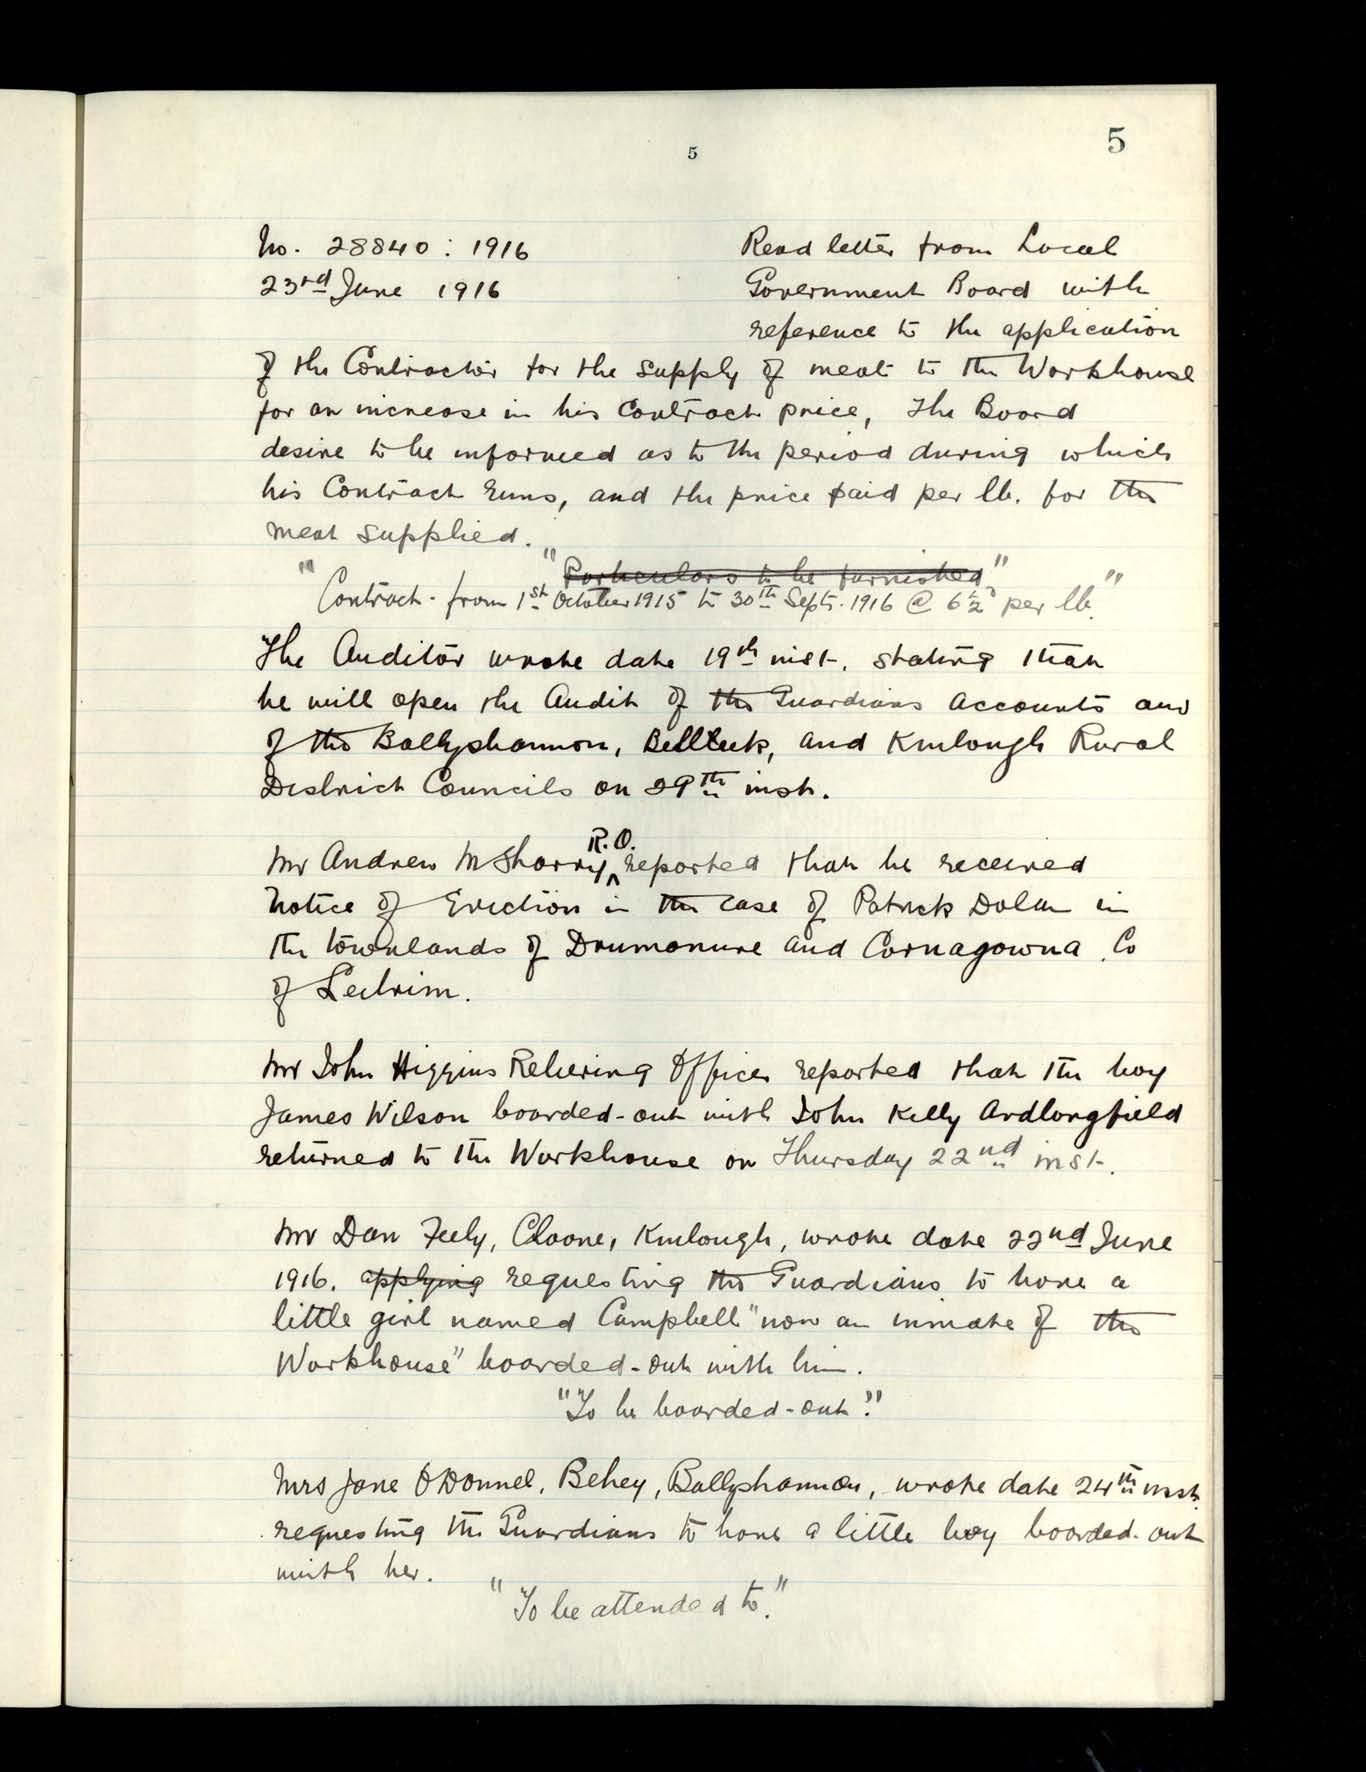 5
5
No. 28840 : 1916 Read letter from Local
23rd June 1916 Government Board with
reference to the application
of the Contractor for the supply of meat to the Workhouse
for an increase in his Contract price, The Board
desire to be informed as to the period during which
his Contract runs, and the price paid per lb. for the
meat supplied.
"Particulars to be furnished"
"Contract - from 1st October 1915 to 30th Sept. 1916 @ 6½d per lb."
The Auditor wrote date 19th inst. stating that
he will open the Audit of the Guardians accounts and
of the Ballyshannon, Belleek, and Kinlough Rural
District Councils on 29th inst.
R.O.
Mr Andrew McSharry reported that he received
Notice of Eviction in the case of Patrick Dolan in
the townlands of Drumonure and Cornagowna Co
of Leitrim.
Mr John Higgins Relieving Officer reported that the boy
James Wilson boarded-out with John Kelly Ardlongfield
returned to the Workhouse on Thursday 22nd inst.
Mr Dan Feely, Cloone, Kinlough, wrote date 22nd June
1916. applying requesting the Guardians to have a
little girl named Campbell "now an inmate of the
Workhouse" boarded-out with him.
"To be boarded-out."
Mrs Jane O'Donnel, Behey, Ballyshannon, wrote date 24th inst.
requesting the Guardians to have a little boy boarded-out
with her.
"To be attended to."